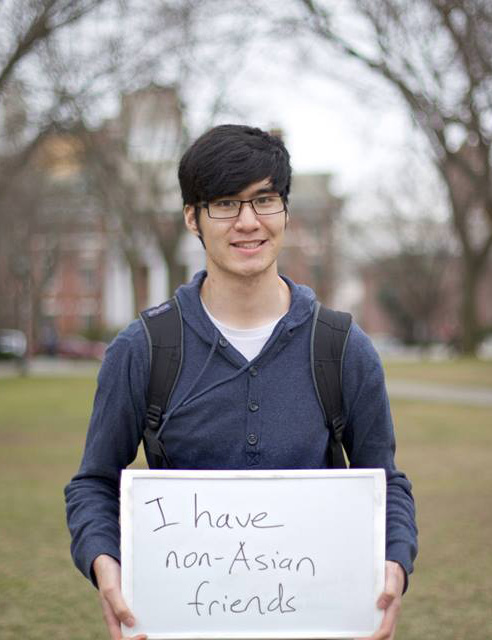 I have
non-Asian
friends